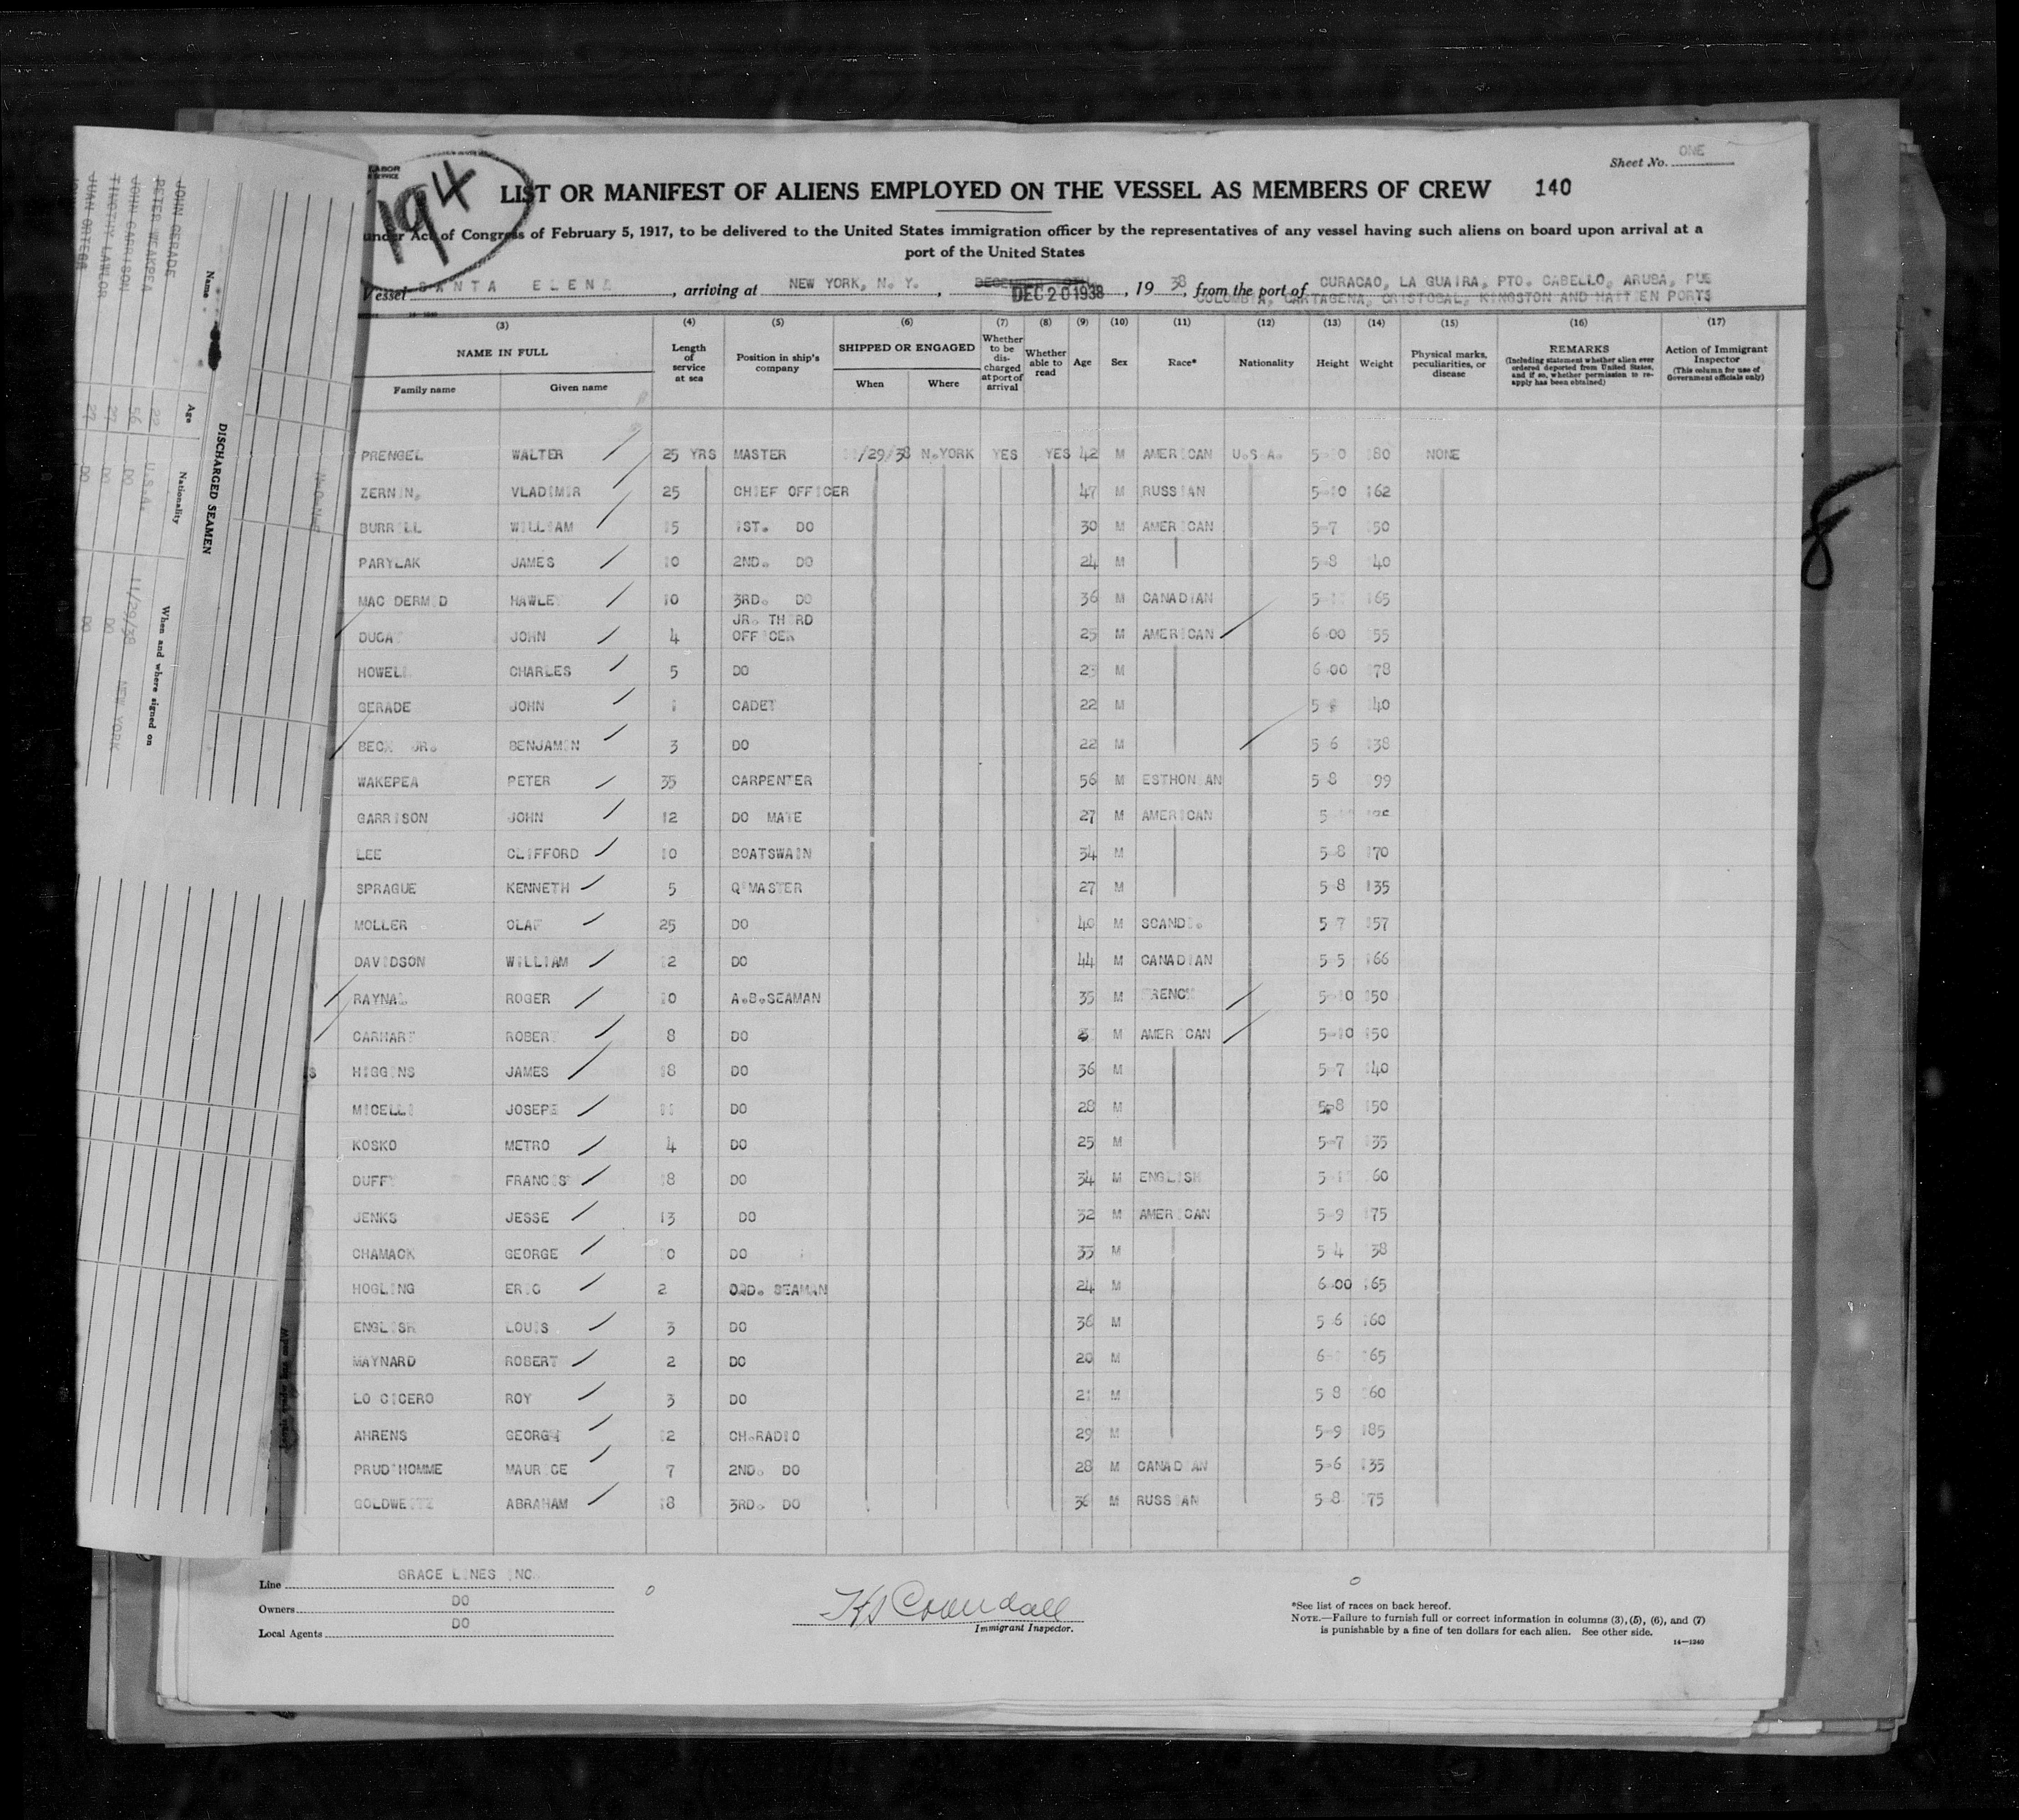 LABOR
194
Sheet No. ONE
LIST OR MANIFEST OF ALIENS EMPLOYED ON THE VESSEL AS MEMBERS OF CREW 140
under Act of Congress of February 5, 1917, to be delivered to the United States immigration officer by the representatives of any vessel having such aliens on board upon arrival at a
port of the United States
Vessel SANTA ELENA, arriving at NEW YORK, N.Y., DEC 20 1938, 1938, from the port of CURACAO, LA GUAIRA, PTO. CABELLO, ARUBA, PUE
COLOMBIA, CARTAGENA, CRISTOBAL, KINGSTON AND HAITIEN PORTS
(3) (4) (5) (6) (7) (8) (9) (10) (11) (12) (13) (14) (15) (16) (17)
NAME IN FULL
Family name Given name
Length of service at sea
Position in ship's company
SHIPPED OR ENGAGED
When Where
Whether to be discharged at port of arrival
Whether able to read
Age
Sex
Race*
Nationality
Height
Weight
Physical marks, peculiarities, or disease
REMARKS
(Including statement whether alien ever ordered deported from United States, and if so, whether permission to re-apply has been obtained)
Action of Immigrant Inspector
(This column for use of Government officials only)
PRENGEL WALTER 25 YRS MASTER 11/29/38 N.YORK YES YES 42 M AMERICAN U.S.A. 5-10 180 NONE
ZERNIN, VLADIMIR 25 CHIEF OFFICER 47 M RUSSIAN 5-10 162
BURRILL WILLIAM 15 1ST. DO 30 M AMERICAN 5-7 150
PARYLAK JAMES 10 2ND. DO 24 M 5-8 140
MAC DERMID HAWLEY 10 3RD. DO 36 M CANADIAN 165
DUCAT JOHN 4 JR. THIRD OFFICER 25 M AMERICAN 6-00 155
HOWELL CHARLES 5 DO 23 M 6-00 178
GERADE JOHN 1 CADET 22 M 140
BECK JR. BENJAMIN 3 DO 22 M 5-6 138
WAKEPEA PETER 35 CARPENTER 56 M ESTHONIAN 5-8 199
GARRISON JOHN 12 DO MATE 27 M AMERICAN
LEE CLIFFORD 10 BOATSWAIN 34 M 5-8 170
SPRAGUE KENNETH 5 Q'MASTER 27 M 5-8 135
MOLLER OLAF 25 DO 40 M SCANDI. 5-7 157
DAVIDSON WILLIAM 12 DO 44 M CANADIAN 5-5 166
RAYNAL ROGER 10 A.B.SEAMAN 35 M FRENCH 5-10 150
CARHART ROBERT 8 DO M AMERICAN 5-10 150
HIGGINS JAMES 18 DO 36 M 5-7 140
MICELLI JOSEPH 11 DO 28 M 5-8 150
KOSKO METRO 4 DO 25 M 5-7 135
DUFFY FRANCIS 18 DO 34 M ENGLISH 160
JENKS JESSE 13 DO 32 M AMERICAN 5-9 175
CHAMACK GEORGE 10 DO 33 M 5-4 138
HOGLING ERIC 2 ORD. SEAMAN 24 M 6-00 165
ENGLISH LOUIS 3 DO 36 M 5-6 160
MAYNARD ROBERT 2 DO 20 M 6-1 165
LO CICERO ROY 3 DO 21 M 5-8 160
AHRENS GEORGE 12 CH.RADIO 29 M 5-9 185
PRUD'HOMME MAURICE 7 2ND. DO 28 M CANADIAN 5-6 135
GOLDWEITZ ABRAHAM 18 3RD. DO 36 M RUSSIAN 5-8 175
Line GRACE LINES INC.
Owners DO
Local Agents DO
Immigrant Inspector.
*See list of races on back hereof.
NOTE.—Failure to furnish full or correct information in columns (3), (5), (6), and (7)
is punishable by a fine of ten dollars for each alien. See other side.
14—1240
8
DISCHARGED SEAMEN
Name Age Nationality When and where signed on
JOHN GERADE 22 U.S.A. 11/29/38 NEW YORK
PETER WEAKPEA 56 DO DO
JOHN GARRISON 27 DO DO
TIMOTHY LAWLOR